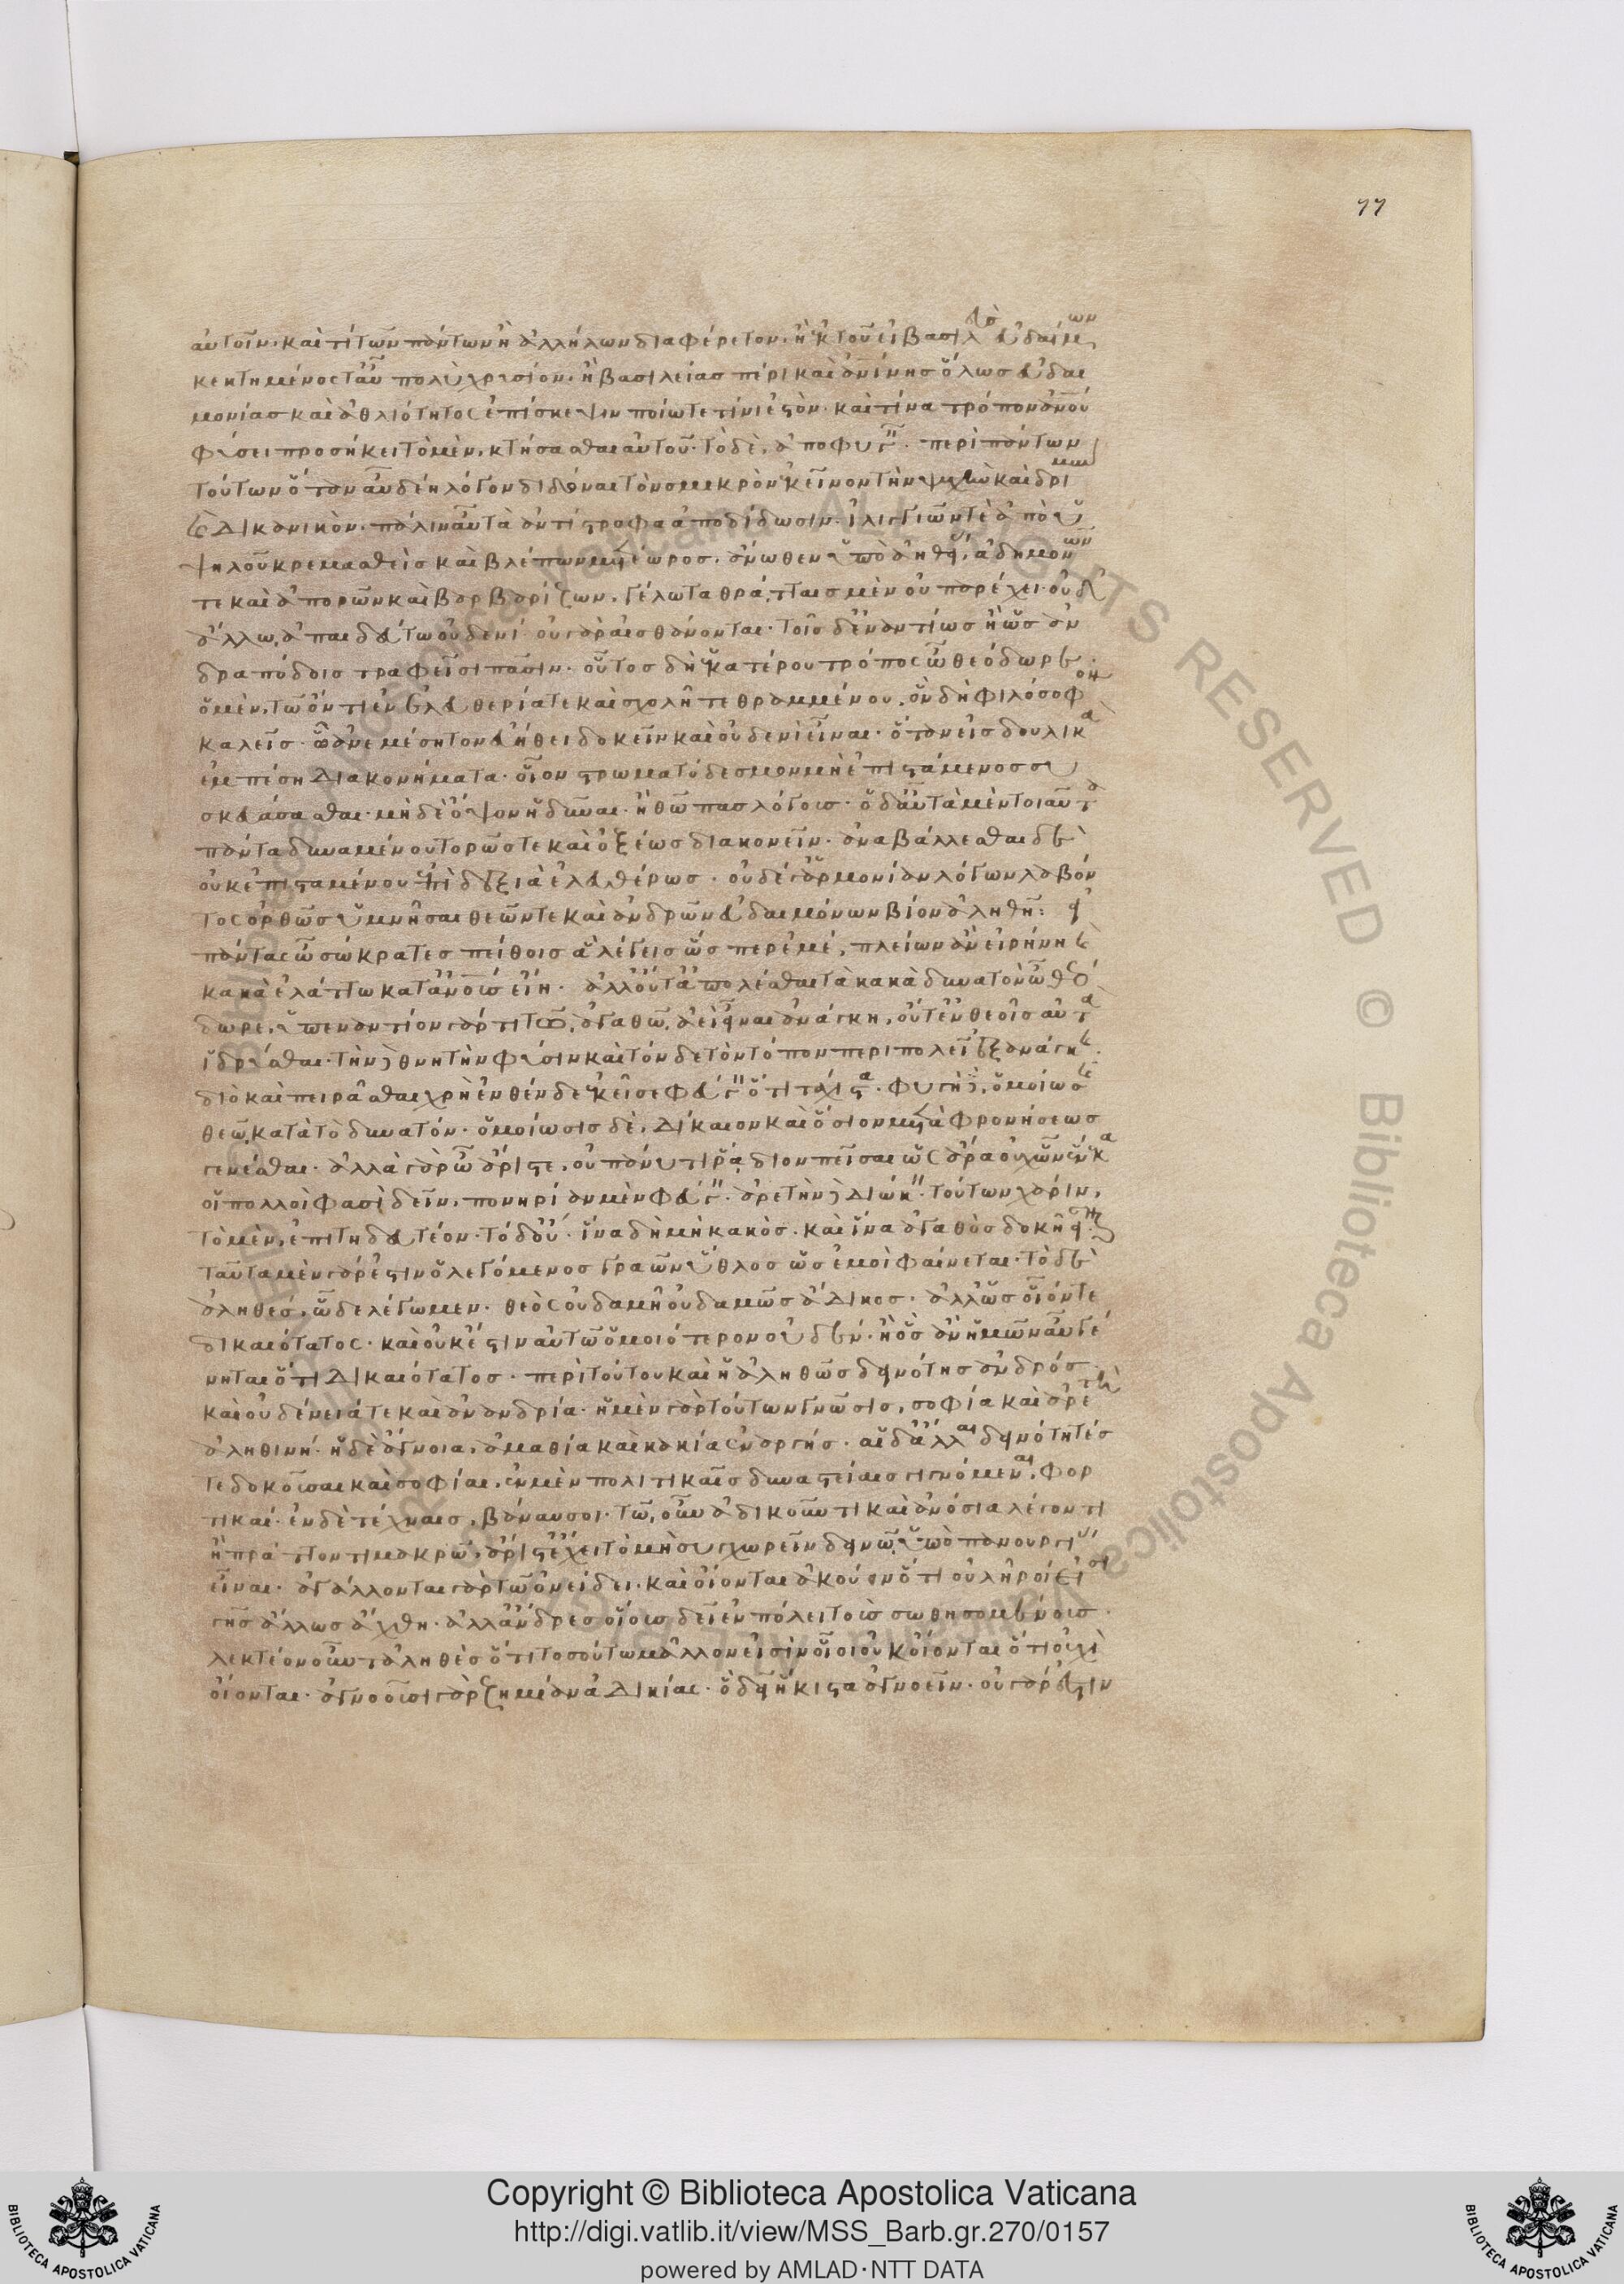 77
αὐτοῖν. καὶ τί τῶν πάντων ἢ ἀλλήλων διαφέρετον. ἢ ἐκ τοῦ εἰ βασιλεὺς εὐδαίμων
κεκτημένος τ' αὖ πολὺ χρυσίον. ἢ βασιλείας πέρι καὶ ἀνίνης ὅλως εὐδαι
μονίας καὶ ἀθλιότητος ἐπίσκεψιν ποίω τε τινὶ ἐστόν. καὶ τίνα τρόπον ἀνου
φύσει προσήκει τὸ μὲν, κτήσασθαι αὐτοῦ. τὸ δὲ, ἀποφυγεῖν. περὶ πάντων
τούτων ὅταν αὖ δέη λόγον διδόναι τὸν σμικρὸν ἐκεῖνον τὴν ψυχὴν καὶ δριμὺν
καὶ δικανικὸν. πάλιν αὖ τὰ ἀντίστροφα ἀποδίδωσιν. ἰλιγγιῶν τὲ ἀπὸ ὑ
ψηλοῦ κρεμασθεὶς καὶ βλέπων μετέωρος. ἄνωθεν ὑπὸ ἀηθείας, ἀδημονῶν
τε καὶ ἀπορῶν καὶ βαρβαρίζων. γέλωτα θράτταις μὲν οὐ παρέχει. οὐδ'
ἄλλω, ἀπαιδεύτω οὐδενί. οὐ γὰρ αἰσθάνονται. τοῖς δ' ἐναντίως ἢ ὡς ἀν
δραπόδοις τραφεῖσι πᾶσιν. οὗτος δὴ ἑκατέρου τρόπος ὦ θεόδωρε.
ὁ μὲν, τῷ ὄντι ἐν ἐλευθερία τε καὶ σχολῆ τεθραμμένου, ὃν δὴ φιλόσοφον
καλεῖς. ᾧ ἀνεμέσητον εὐήθει δοκεῖν καὶ οὐδενὶ εἶναι. ὅταν εἰς δουλικὰ
ἐμπέση διακονήματα. οἷον στρωματόδεσμον μὴ ἐπιστάμενος συ
σκευάσασθαι. μηδὲ ὄψον ἡδῦναι. ἢ θῶπας λόγοις. ὁ δ' αὖ τὰ μὲν τοιαῦτα
πάντα δυναμένου τορῶς τε καὶ ὀξέως διακονεῖν. ἀναβάλλεσθαι δὲ
οὐκ ἐπισταμένου ἐπὶ δεξιὰ ἐλευθέρως. οὐδέ γ' ἁρμονίαν λόγων λαβόν
τος ὀρθῶς ὑμνῆσαι θεῶν τε καὶ ἀνδρῶν εὐδαιμόνων βίον ἀληθῆ: εἰ
πάντας ὦ σώκρατες πείθοις ἃ λέγεις ὥσπερ ἐμέ, πλείων ἂν εἰρήνη καὶ
κακὰ ἐλάττω κατ' ἀνθρώπους εἴη. ἀλλ' οὔτ' ἀπολέσθαι τὰ κακὰ δυνατὸν ὦ θεό
δωρε. ὑπεναντίον γάρ τι τῷ, ἀγαθῷ, ἀεὶ εἶναι ἀνάγκη, οὔτ' ἐν θεοῖς αὐτὰ
ἱδρύσθαι. τὴν δὲ θνητὴν φύσιν καὶ τόνδε τὸν τόπον περιπολεῖ ἐξ ἀνάγκης.
διὸ καὶ πειρᾶσθαι χρὴ ἐνθένδε ἐκεῖσε φεύγειν ὅτι τάχιστα. φυγὴ δὲ, ὁμοίωσις
θεῷ, κατὰ τὸ δυνατόν. ὁμοίωσις δὲ, δίκαιον καὶ ὅσιον μετὰ φρονήσεως
γενέσθαι. ἀλλὰ γὰρ ὦ ἄριστε, οὐ πάνυ τι ῥάδιον πεῖσαι ὡς ἄρα οὐχ ὧν ἕνεκα
οἱ πολλοί φασὶ δεῖν. πονηρίαν μὲν φεύγειν. ἀρετὴν δὲ διώκειν. τούτων χάριν,
τὸ μὲν, ἐπιτηδευτέον. τὸ δ' οὔ. ἵνα δὴ μὴ κακὸς. καὶ ἵνα ἀγαθὸς δοκῆ εἶναι.
ταῦτα μὲν γάρ ἐστιν ὁ λεγόμενος γραῶν ὕθλος ὡς ἐμοὶ φαίνεται. τὸ δὲ
ἀληθές, ὧδε λέγωμεν. θεὸς οὐδαμῆ οὐδαμῶς ἄδικος. ἀλλ' ὡς οἷόν τε
δικαιότατος. καὶ οὐκ ἔστιν αὐτῷ ὁμοιότερον οὐδὲν. ἢ ὃς ἂν ἡμῶν αὖ γέ
νηται ὅτι δικαιότατος. περὶ τούτου καὶ ἡ ἀληθῶς δεινότης ἀνδρός.
καὶ οὐδένειά τε καὶ ἀνανδρία. ἡ μὲν γὰρ τούτων γνῶσις, σοφία καὶ ἀρετὴ
ἀληθινή. ἡ δὲ ἄγνοια, ἀμαθία καὶ κακία ἐναργής. αἱ δ' ἄλλαι δεινότητές
τε δοκοῦσαι καὶ σοφίαι, ἐν μὲν πολιτικαῖς δυναστείαις γιγνόμεναι, φορ
τικαί. ἐν δὲ τέχναις, βάναυσοι. τῷ, οὖν ἀδικοῦντι καὶ ἀνόσια λέγοντι
ἢ πράττοντι μακρῷ, ἄριστ' ἔχει τὸ μὴ συγχωρεῖν δεινῷ, ὑπὸ πανουργίας
εἶναι. ἀγάλλονται γὰρ τῷ ὀνείδει. καὶ οἴονται ἀκούειν ὅτι οὐ λῆροί εἰσι
γῆς ἄλλως ἄχθη. ἀλλ' ἄνδρες οἵους δεῖ ἐν πόλει τοὺς σωθησομένους.
λεκτέον οὖν τἀληθὲς ὅτι τοσούτω μᾶλλον εἰσὶν οἷοι οὐκ οἴονται ὅτι οὐχὶ
οἴονται. ἀγνοοῦσι γὰρ ζημίαν ἀδικίας. ὃ δεῖ ἥκιστα ἀγνοεῖν. οὐ γάρ ἐστιν
Copyright © Biblioteca Apostolica Vaticana
http://digi.vatlib.it/view/MSS_Barb.gr.270/0157
powered by AMLAD·NTT DATA
BIBLIOTECA APOSTOLICA VATICANA
BIBLIOTECA APOSTOLICA VATICANA